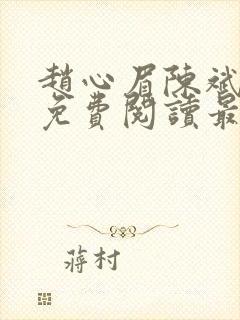 趙心眉陳斌
免費閱讀最
蔣村